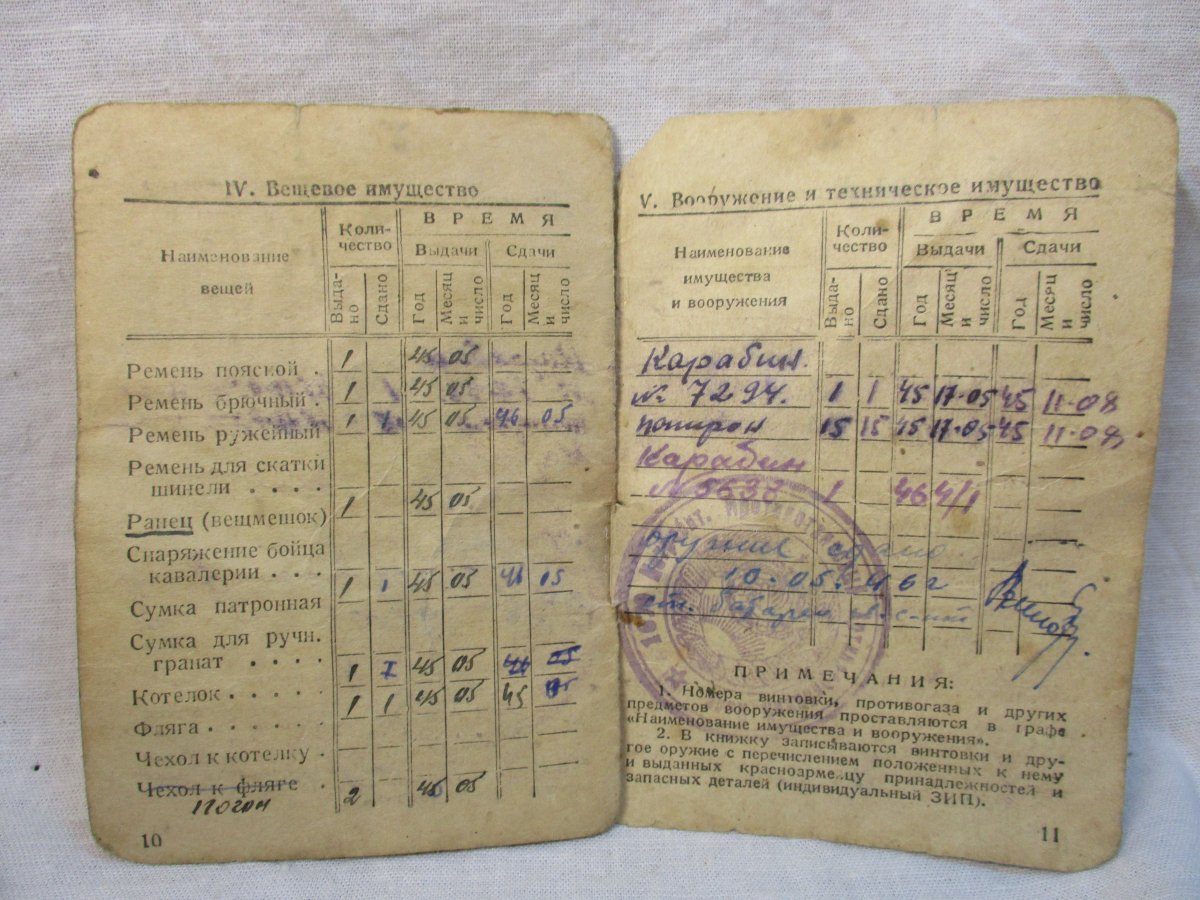 IV. Вещевое имущество
Наименование вещей
Коли-
чество
ВРЕМЯ
Выдачи
Сдачи
Выда-
но
Сдано
Год
Месяц
и
число
Год
Месяц
и
число
Ремень поясной . 1 45 05
Ремень брючный . 1 45 05
Ремень руженный 1 1 45 05 46 05
Ремень для скатки
шинели . . . . 1 45 05
Ранец (вещмешок)
Снаряжение бойца
кавалерии . . . 1 1 45 05 46 05
Сумка патронная
Сумка для ручн.
гранат . . . . 1 1 45 05 46 05
Котелок . . . . . 1 1 45 05 45 05
Фляга . . . . .
Чехол к котелку .
Чехол к фляге . 2 45 05
погон
10
V. Вооружение и техническое имущество
Наименование
имущества
и вооружения
Коли-
чество
ВРЕМЯ
Выдачи
Сдачи
Выда-
но
Сдано
Год
Месяц
и
число
Год
Месец
и
число
Карабин
№ 7294. 1 1 45 17-05 45 11-08
патрон 15 15 45 17-05 45 11-08
Карабин
1 46 4/1
оружие сдано
10.05.46г
ст. батареи
ПРИМЕЧАНИЯ:
1. Номера винтовки, противогаза и других
предметов вооружения проставляются в графе
«Наименование имущества и вооружения».
2. В книжку записываются винтовки и дру-
гое оружие с перечислением положенных к нему
и выданных красноармейцу принадлежностей и
запасных деталей (индивидуальный ЗИП).
11